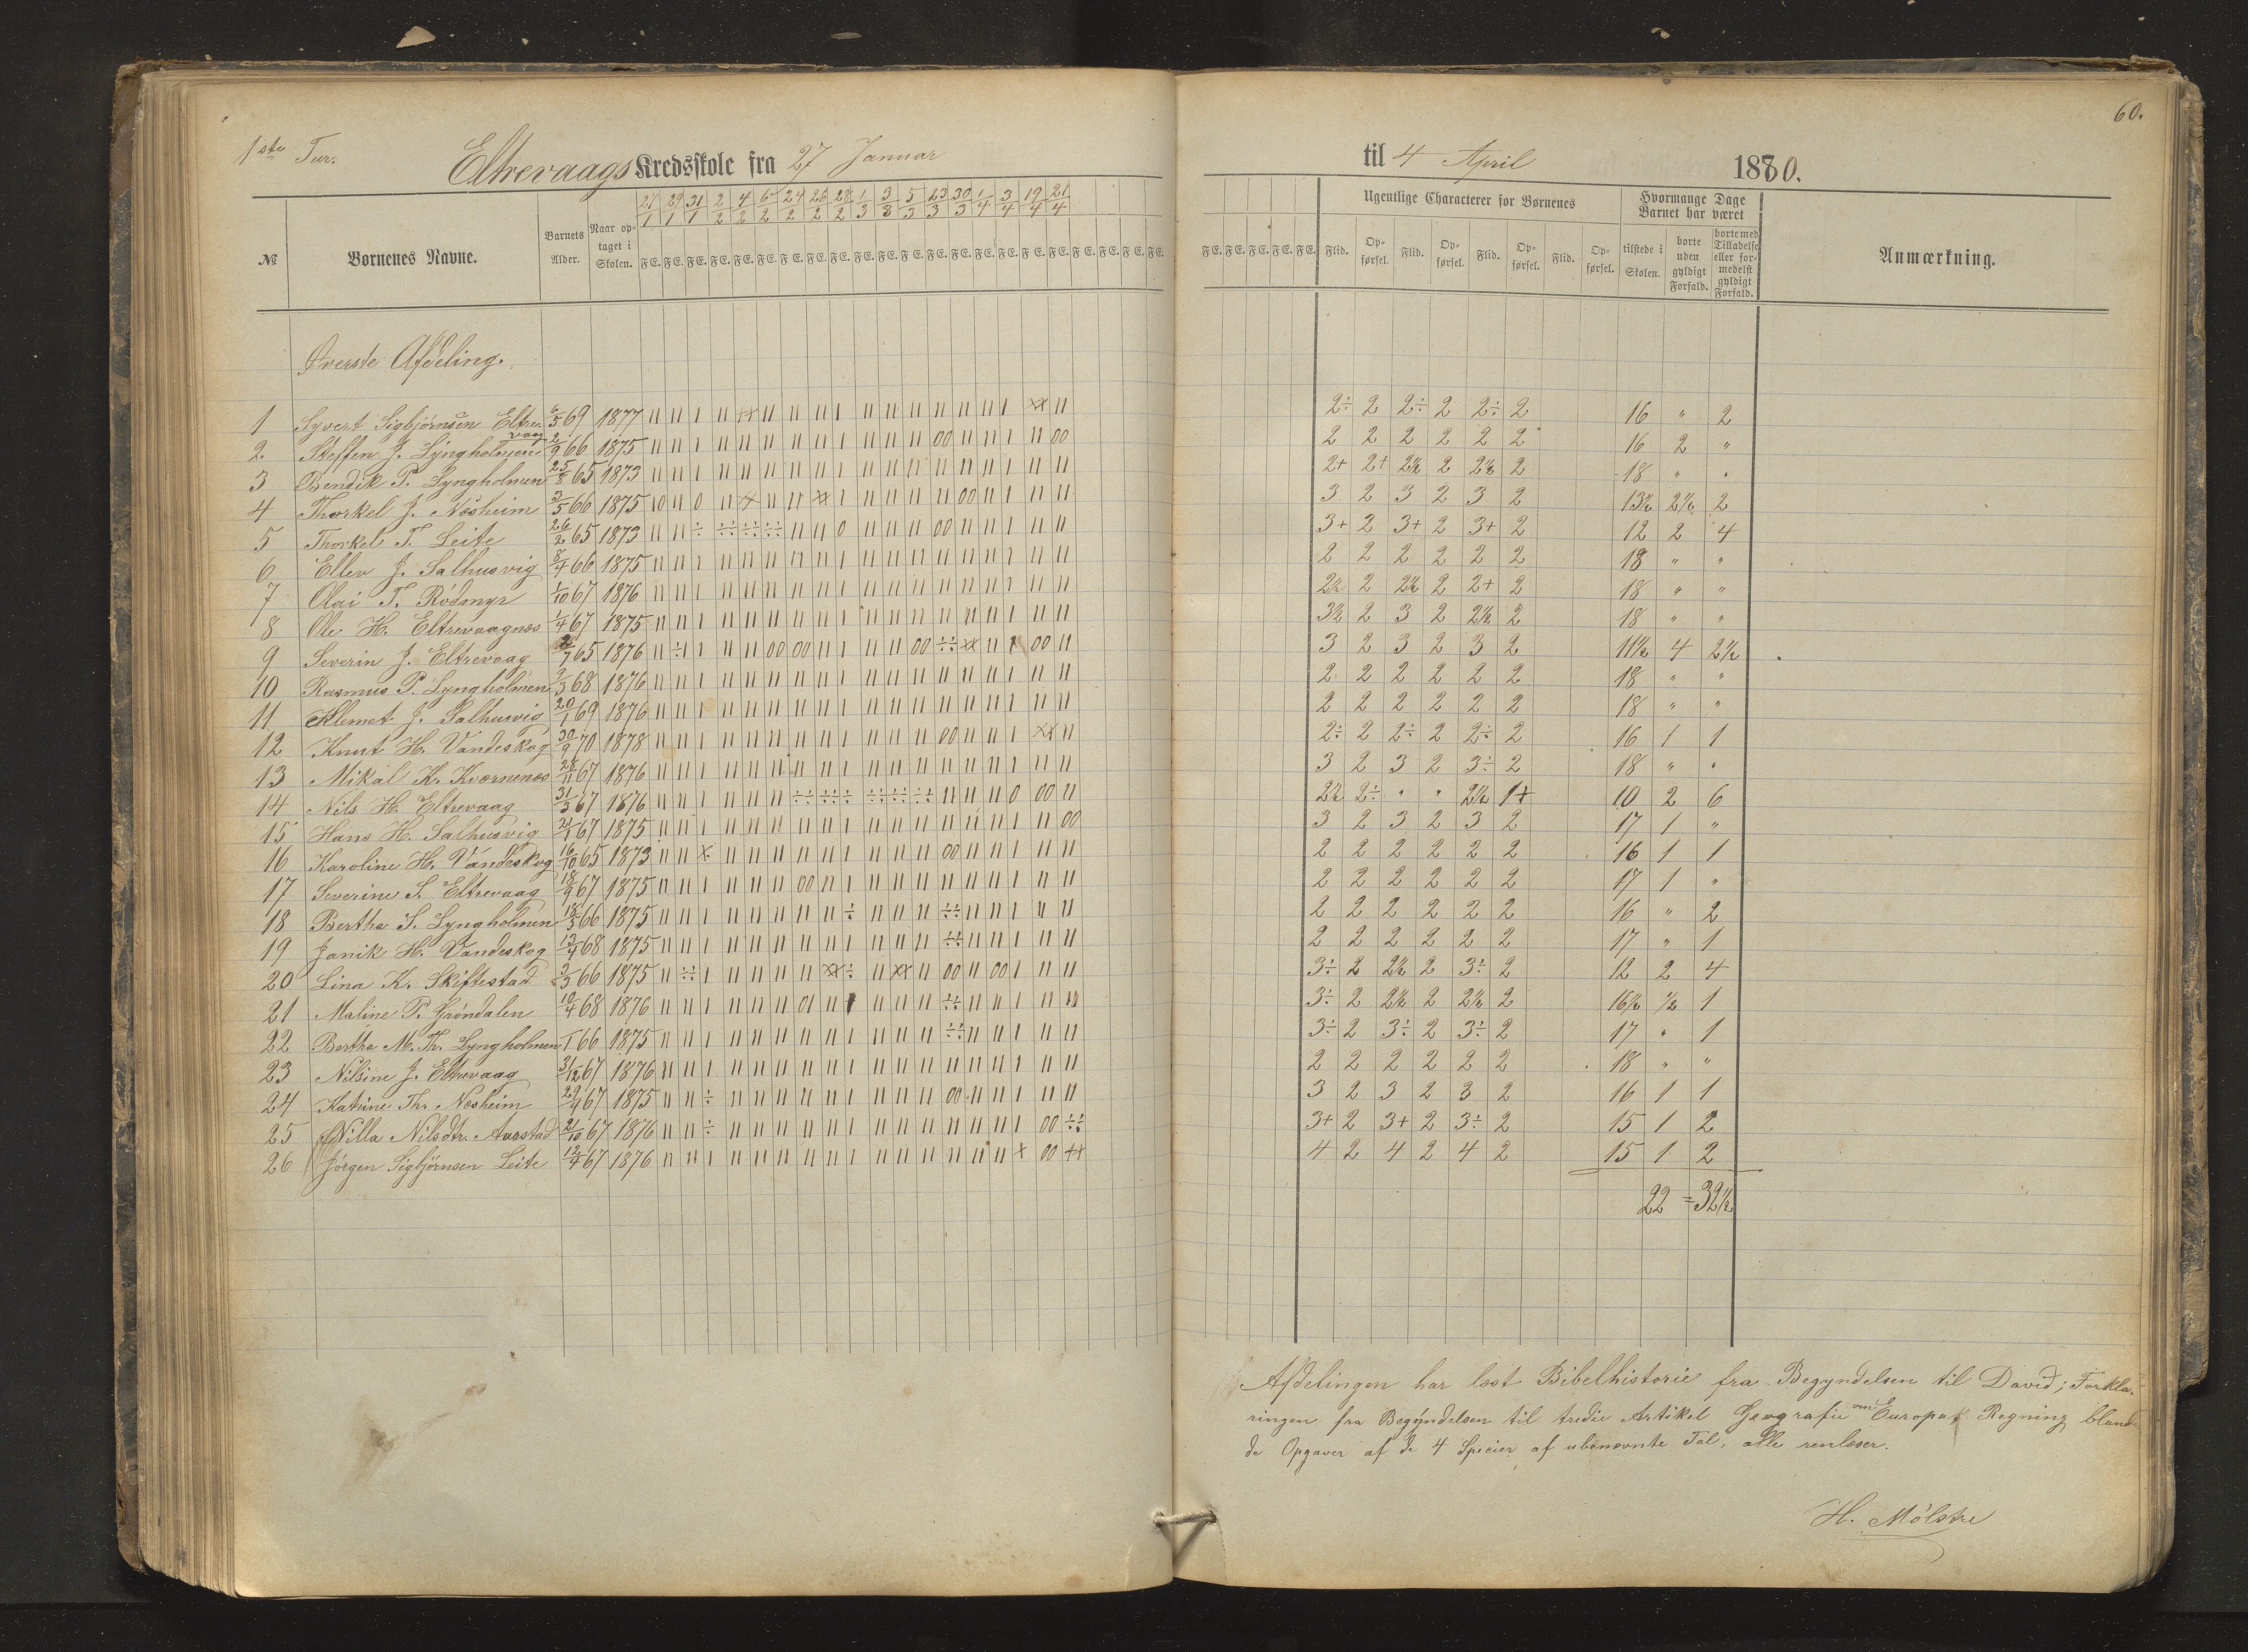 60.
1ste Tur.
Eltrevaags Kredsskole fra 27 Januar
til 4 April 1880.
27/1 29/1 31/1 2/2 4/2 6/2 24/2 26/2 28/2 1/3 3/3 5/3 23/3 30/3 1/4 3/4 19/4 21/4
№ Børnenes Navne. Barnets Alder. Naar optaget i Skolen. F E. F E. F E. F E. F E. F E. F E. F E. F E. F E. F E. F E. F E. F E. F E. F E. F E. F E. F E. F E. F E. F E.
F E. F E. F E. F E. F E. Ugentlige Characterer for Børnenes Flid. Opførsel. Flid. Opførsel. Flid. Opførsel. Flid. Opførsel. Hvormange Dage Barnet har været tilstede i Skolen. borte uden gyldigt Forfald. borte med Tilladelse eller formedelst gyldigt Forfald. Anmærkning.
Øverste Afdeling.
1 Syvert Sigbjørnsen Eltrevaag 6/5 69 1877 2÷ 2 2÷ 2 2÷ 2 16 " 2
2. Steffen J. Lyngholmen 2/9 66 1875 2 2 2 2 2 2 16 2 "
3 Bendik P. Lyngholmen 25/8 65 1873 2+ 2+ 2½ 2 2½ 2 18 " "
4 Thorkel J. Næsheim 3/5 66 1875 3 2 3 2 3 2 13½ 2½ 2
5 Thorkel T. Leite 26/2 65 1873 3+ 2 3+ 2 3+ 2 12 2 4
6 Ellev J. Salhusvig 8/4 66 1875 2 2 2 2 2 2 18 " "
7 Olai T. Rødmyr 1/10 67 1876 2½ 2 2½ 2 2+ 2 18 " "
8 Ole H. Eltrevaagnæs 1/4 67 1875 3½ 2 3 2 2½ 2 18 " "
9 Severin J. Eltrevaag 65 1876 3 2 3 2 3 2 11½ 4 2½
10 Rasmus P. Lyngholmen 2/3 68 1876 2 2 2 2 2 2 18 " "
11 Klemet J. Salhusvig 20/1 69 1876 2 2 2 2 2 2 18 " "
12 Knut H. Vandeskog 30/9 70 1878 2÷ 2 2÷ 2 2÷ 2 16 1 1
13 Mikal K. Kværnenæs 28/11 67 1876 3 2 3 2 3÷ 2 18 " "
14 Nils H. Eltrevaag 31/3 67 1876 2½ 2÷ " " 2½ 1+ 10 2 6
15 Hans H. Salhusvig 21/1 67 1875 3 2 3 2 3 2 17 1 "
16 Karoline H. Vandeskog 16/10 65 1873 2 2 2 2 2 2 16 1 1
17 Severine S. Eltrevaag 18/9 67 1875 2 2 2 2 2 2 17 1 "
18 Bertha S. Lyngholmen 18/5 66 1875 2 2 2 2 2 2 16 " 2
19 Janik H. Vandeskog 13/4 68 1875 2 2 2 2 2 2 17 " 1
20 Lina K. Skiftestad 3/3 66 1875 3÷ 2 2½ 2 3÷ 2 12 2 4
21 Maline P. Grøndalen 10/4 68 1876 3÷ 2 2½ 2 2½ 2 16½ ½ 1
22 Bertha M. Th. Lyngholmen 66 1875 3÷ 2 3÷ 2 3÷ 2 17 " 1
23 Nilsine J. Eltrevaag 31/12 67 1876 2 2 2 2 2 2 18 " "
24 Katrine Thr. Næsheim 29/4 67 1875 3 2 3 2 3 2 16 1 1
25 Nilla Nilsdtr. Aarstad 21/10 67 1876 3+ 2 3+ 2 3÷ 2 15 1 2
26 Jørgen Sigbjørnsen Leite 12/4 67 1876 4 2 4 2 4 2 15 1 2
22 = 32½
Afdelingen har læst Bibelhistorie fra Begyndelsen til David; Forkla-
ringen fra Begyndelsen til tredie Artikel Geografie om Europa, Regning blande-
de Opgaver af de 4 Specier af ubenævnte Tal, alle renlæser.
H. Mølstre